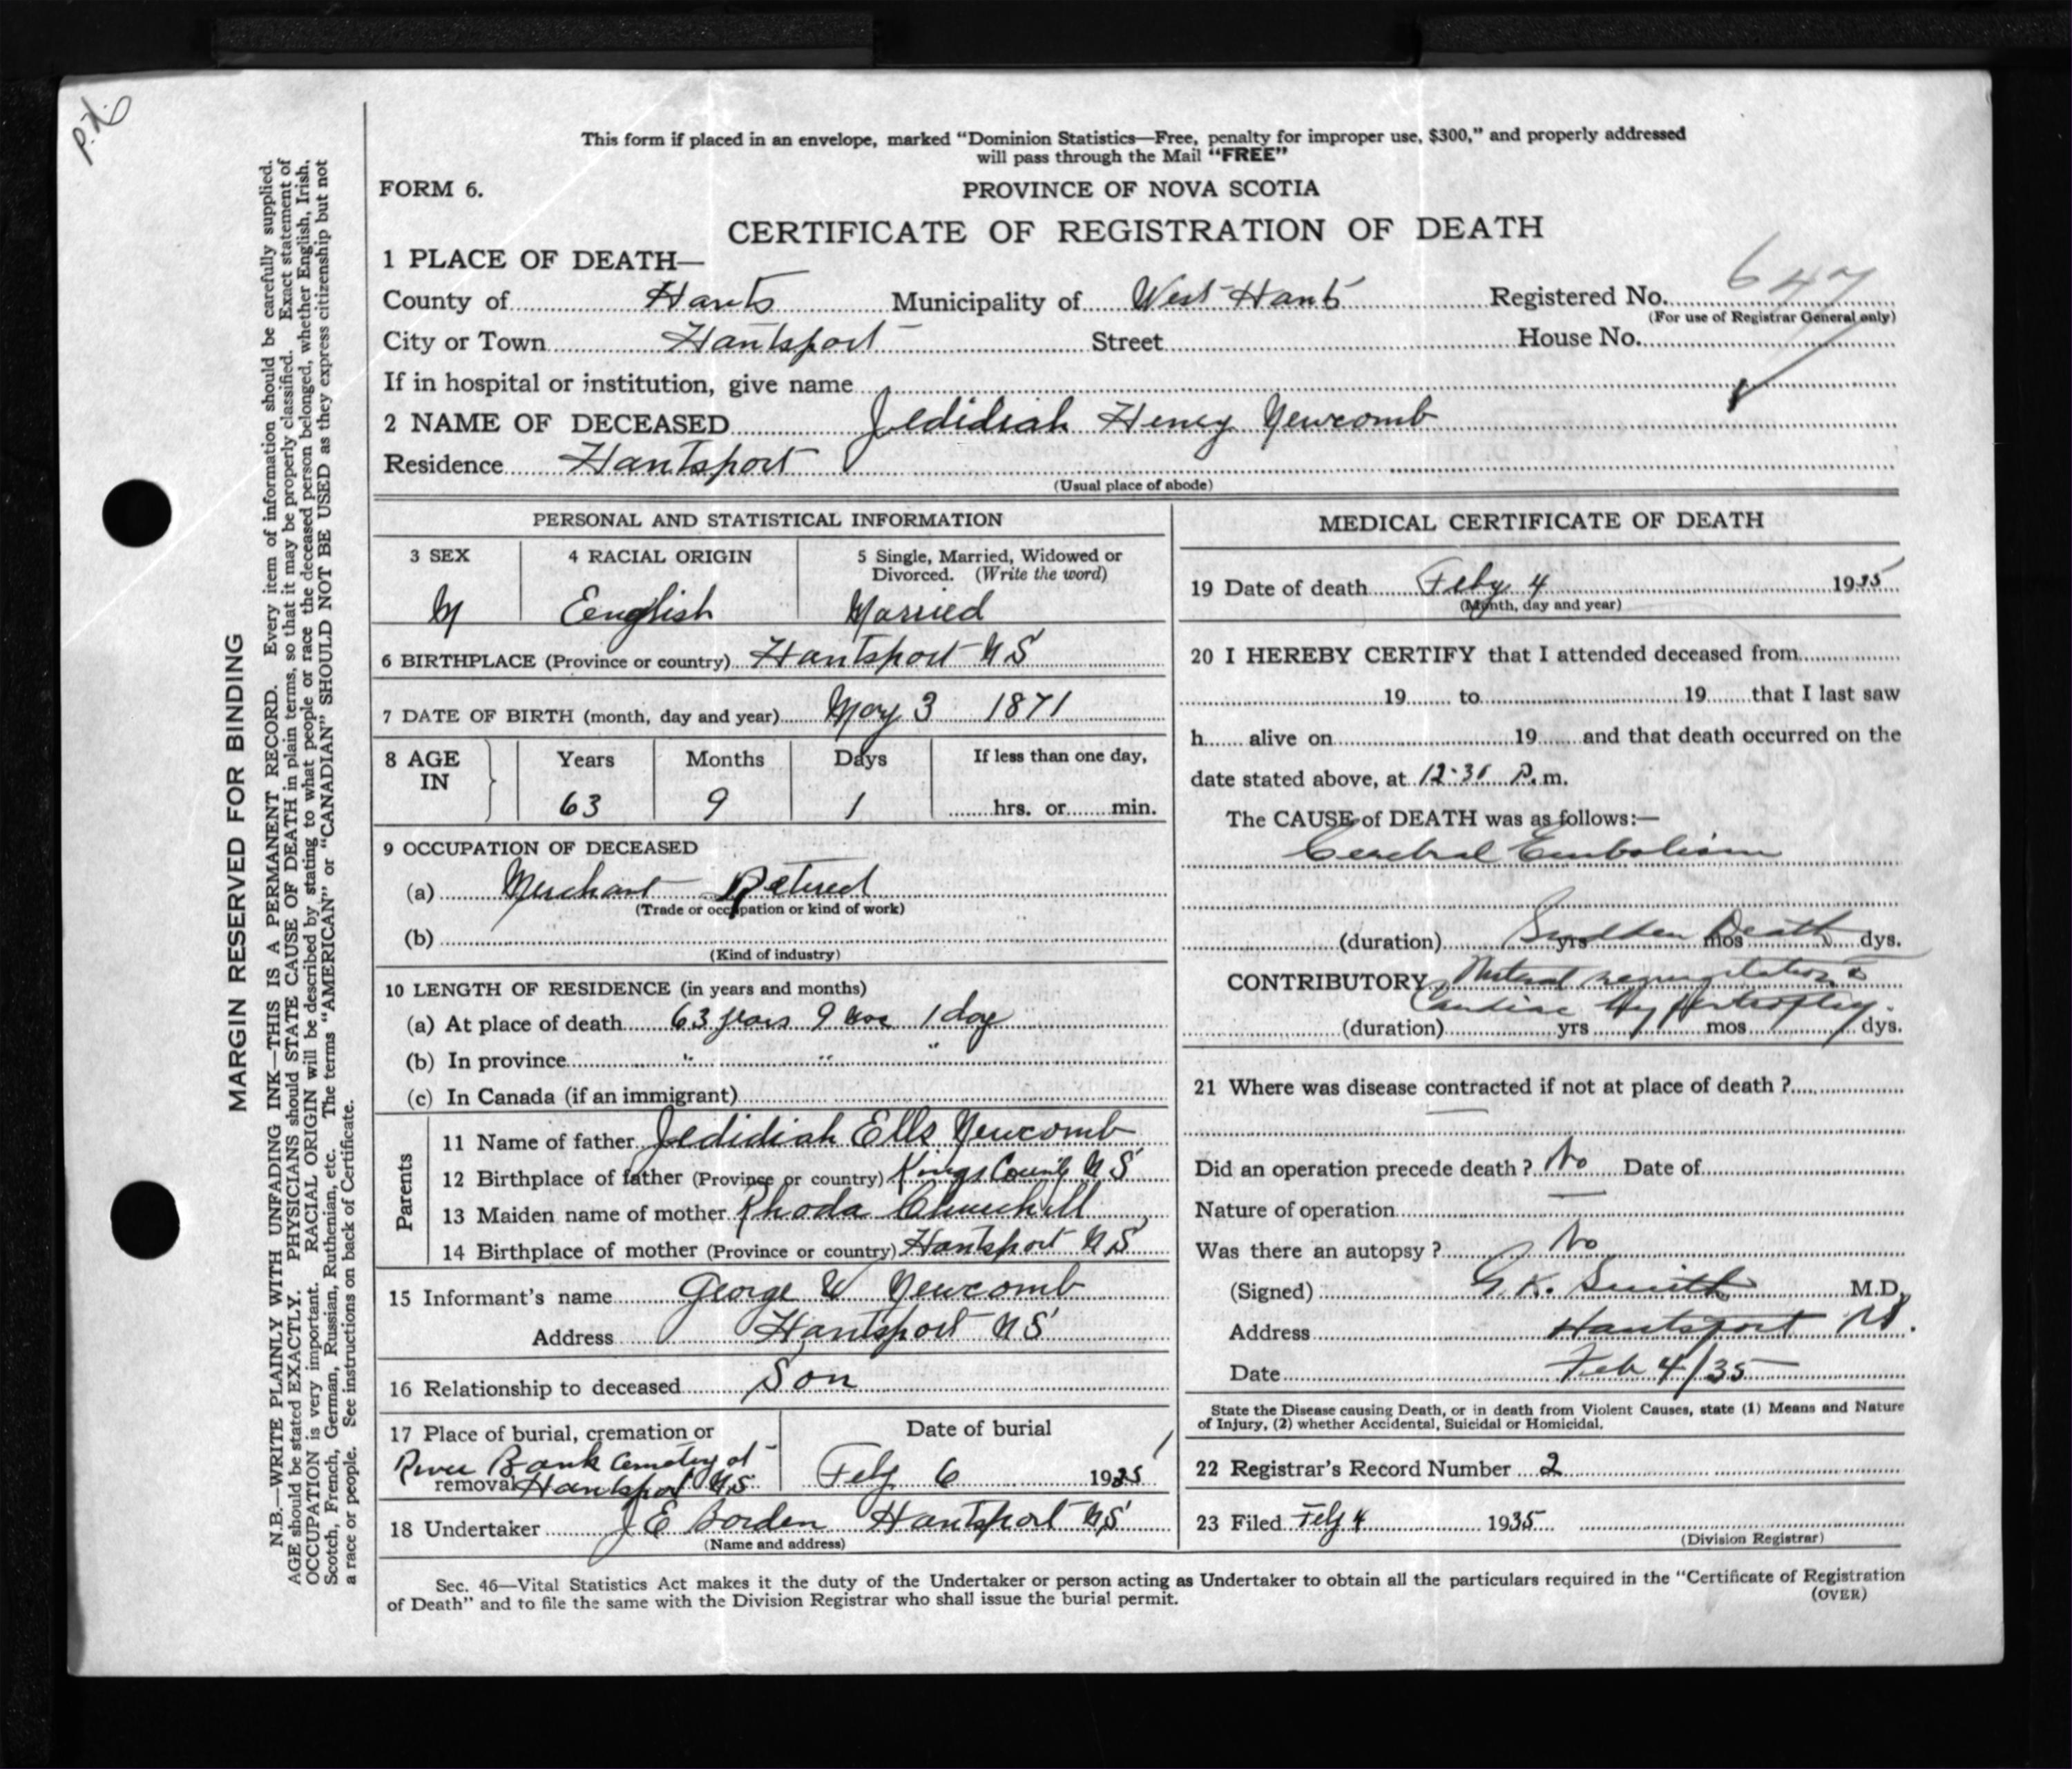 P.D.
This form if placed in an envelope, marked "Dominion Statistics—Free, penalty for improper use, $300," and properly addressed
will pass through the Mail "FREE"
FORM 6.
PROVINCE OF NOVA SCOTIA
CERTIFICATE OF REGISTRATION OF DEATH
1 PLACE OF DEATH—
County of Hants Municipality of West Hants Registered No. 647
(For use of Registrar General only)
City or Town Hantsport Street House No.
If in hospital or institution, give name
2 NAME OF DECEASED Jedidiah Henry Newcomb
Residence Hantsport
(Usual place of abode)
PERSONAL AND STATISTICAL INFORMATION
3 SEX
M
4 RACIAL ORIGIN
Eenglish
5 Single, Married, Widowed or
Divorced. (Write the word)
Married
6 BIRTHPLACE (Province or country) Hantsport N S
7 DATE OF BIRTH (month, day and year) May 3 1871
8 AGE IN
Years Months Days If less than one day,
63 9 1 hrs. or min.
9 OCCUPATION OF DECEASED
(a) Merchant Retired
(Trade or occupation or kind of work)
(b)
(Kind of industry)
10 LENGTH OF RESIDENCE (in years and months)
(a) At place of death 63 years 9 mos 1 day
(b) In province " " "
(c) In Canada (if an immigrant)
Parents
11 Name of father Jedidiah Ells Newcomb
12 Birthplace of father (Province or country) Kings County N S
13 Maiden name of mother Rhoda Churchill
14 Birthplace of mother (Province or country) Hantsport N S
15 Informant's name George W Newcomb
Address Hantsport N S
16 Relationship to deceased Son
17 Place of burial, cremation or
River Bank Cemetery at
removal Hantsport N S
Date of burial
Feby 6 1935
18 Undertaker J E Borden Hantsport N S
(Name and address)
MEDICAL CERTIFICATE OF DEATH
19 Date of death Feby 4 1935
(Month, day and year)
20 I HEREBY CERTIFY that I attended deceased from
19 to 19 that I last saw
h alive on 19 and that death occurred on the
date stated above, at 12.30 P. m.
The CAUSE of DEATH was as follows:—
Cerebral Embolism
(duration) yrs mos dys.
Sudden Death
CONTRIBUTORY Mitral regurgitation &
Cardiac Hypertrophy.
(duration) yrs mos dys.
21 Where was disease contracted if not at place of death ?
Did an operation precede death ? No Date of
Nature of operation —
Was there an autopsy ? No
(Signed) G. K. Smith M.D.
Address Hantsport NS.
Date Feb 4/35
State the Disease causing Death, or in death from Violent Causes, state (1) Means and Nature
of Injury, (2) whether Accidental, Suicidal or Homicidal.
22 Registrar's Record Number 2
23 Filed Feby 4 1935
(Division Registrar)
Sec. 46—Vital Statistics Act makes it the duty of the Undertaker or person acting as Undertaker to obtain all the particulars required in the "Certificate of Registration
of Death" and to file the same with the Division Registrar who shall issue the burial permit.
(OVER)
MARGIN RESERVED FOR BINDING
N.B.—WRITE PLAINLY WITH UNFADING INK—THIS IS A PERMANENT RECORD. Every item of information should be carefully supplied.
AGE should be stated EXACTLY. PHYSICIANS should STATE CAUSE OF DEATH in plain terms, so that it may be properly classified. Exact statement of
OCCUPATION is very important. RACIAL ORIGIN will be described by stating to what people or race the deceased person belonged, whether English, Irish,
Scotch, French, German, Russian, Ruthenian, etc. The terms "AMERICAN" or "CANADIAN" SHOULD NOT BE USED as they express citizenship but not
a race or people. See instructions on back of Certificate.